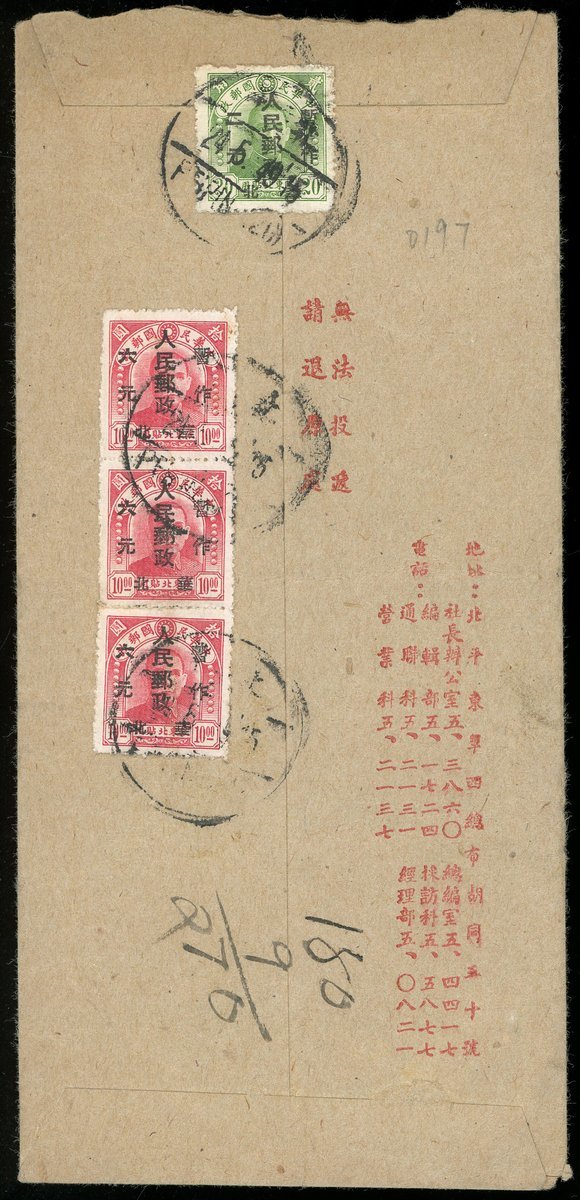 人民郵政
暫作
二元
華北
20
PEIPING
0197
無法投遞
請退原處
暫作
人民郵政
六元
華北
10.00
10.00
暫作
人民郵政
六元
華北
10.00
10.00
暫作
人民郵政
六元
華北
10.00
10.00
地址：北平東單西總布胡同五十號
電話：
社長辦公室五、三八六〇 總編室五、四四一七
編輯部五、一七二四 採訪科五、五八七七
通聯科五、二一三一 經理部五、〇八二一
營業科五、二一三七
180
9
270